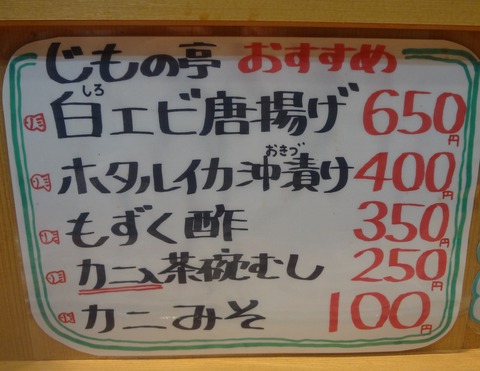 じもの亭 おすすめ
白エビ唐揚げ 650円
しろ
ホタルイカ沖漬け 400円
おきづ
もずく酢 350円
カニ入茶碗むし 250円
カニみそ 100円